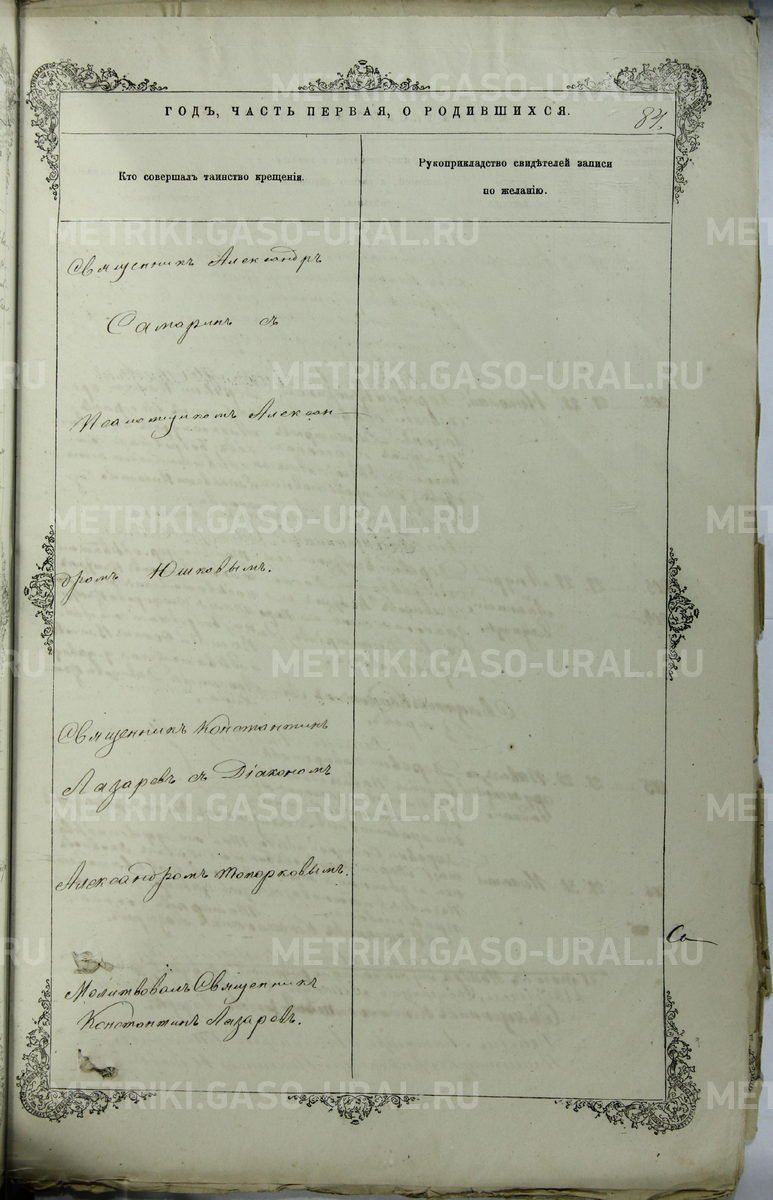 ГОДЪ, ЧАСТЬ ПЕРВАЯ, О РОДИВШИХСЯ.
84.
Кто совершалъ таинство крещенія.
Рукоприкладство свидѣтелей записи
по желанію.
Священникъ Александръ
Самаринъ съ
Псаломщикомъ Алексан-
дромъ Юшковымъ.
Священникъ Константинъ
Лазаревъ съ Діакономъ
Александромъ Топорковымъ.
Молитвовалъ Священникъ
Константинъ Лазаревъ.
METRIKI.GASO-URAL.RU